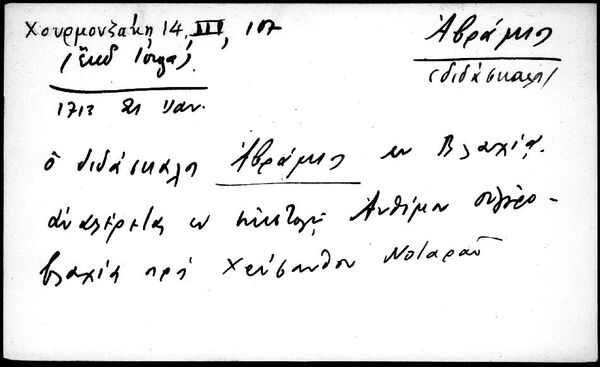 Χουρμουζάκη 14, III, 107
(ἔκδ Ἰόργα)
1713 21 Ιαν.
Ἀβράμιος
(διδάσκαλος)
ὁ διδάσκαλος Ἀβράμιος εν Βλαχίᾳ.
ἀναφέρεται εν ἐπιστολῇ Ανθίμου οὑγγρο-
βλαχίας πρὸς Χρύσανθον Νοταρᾶν